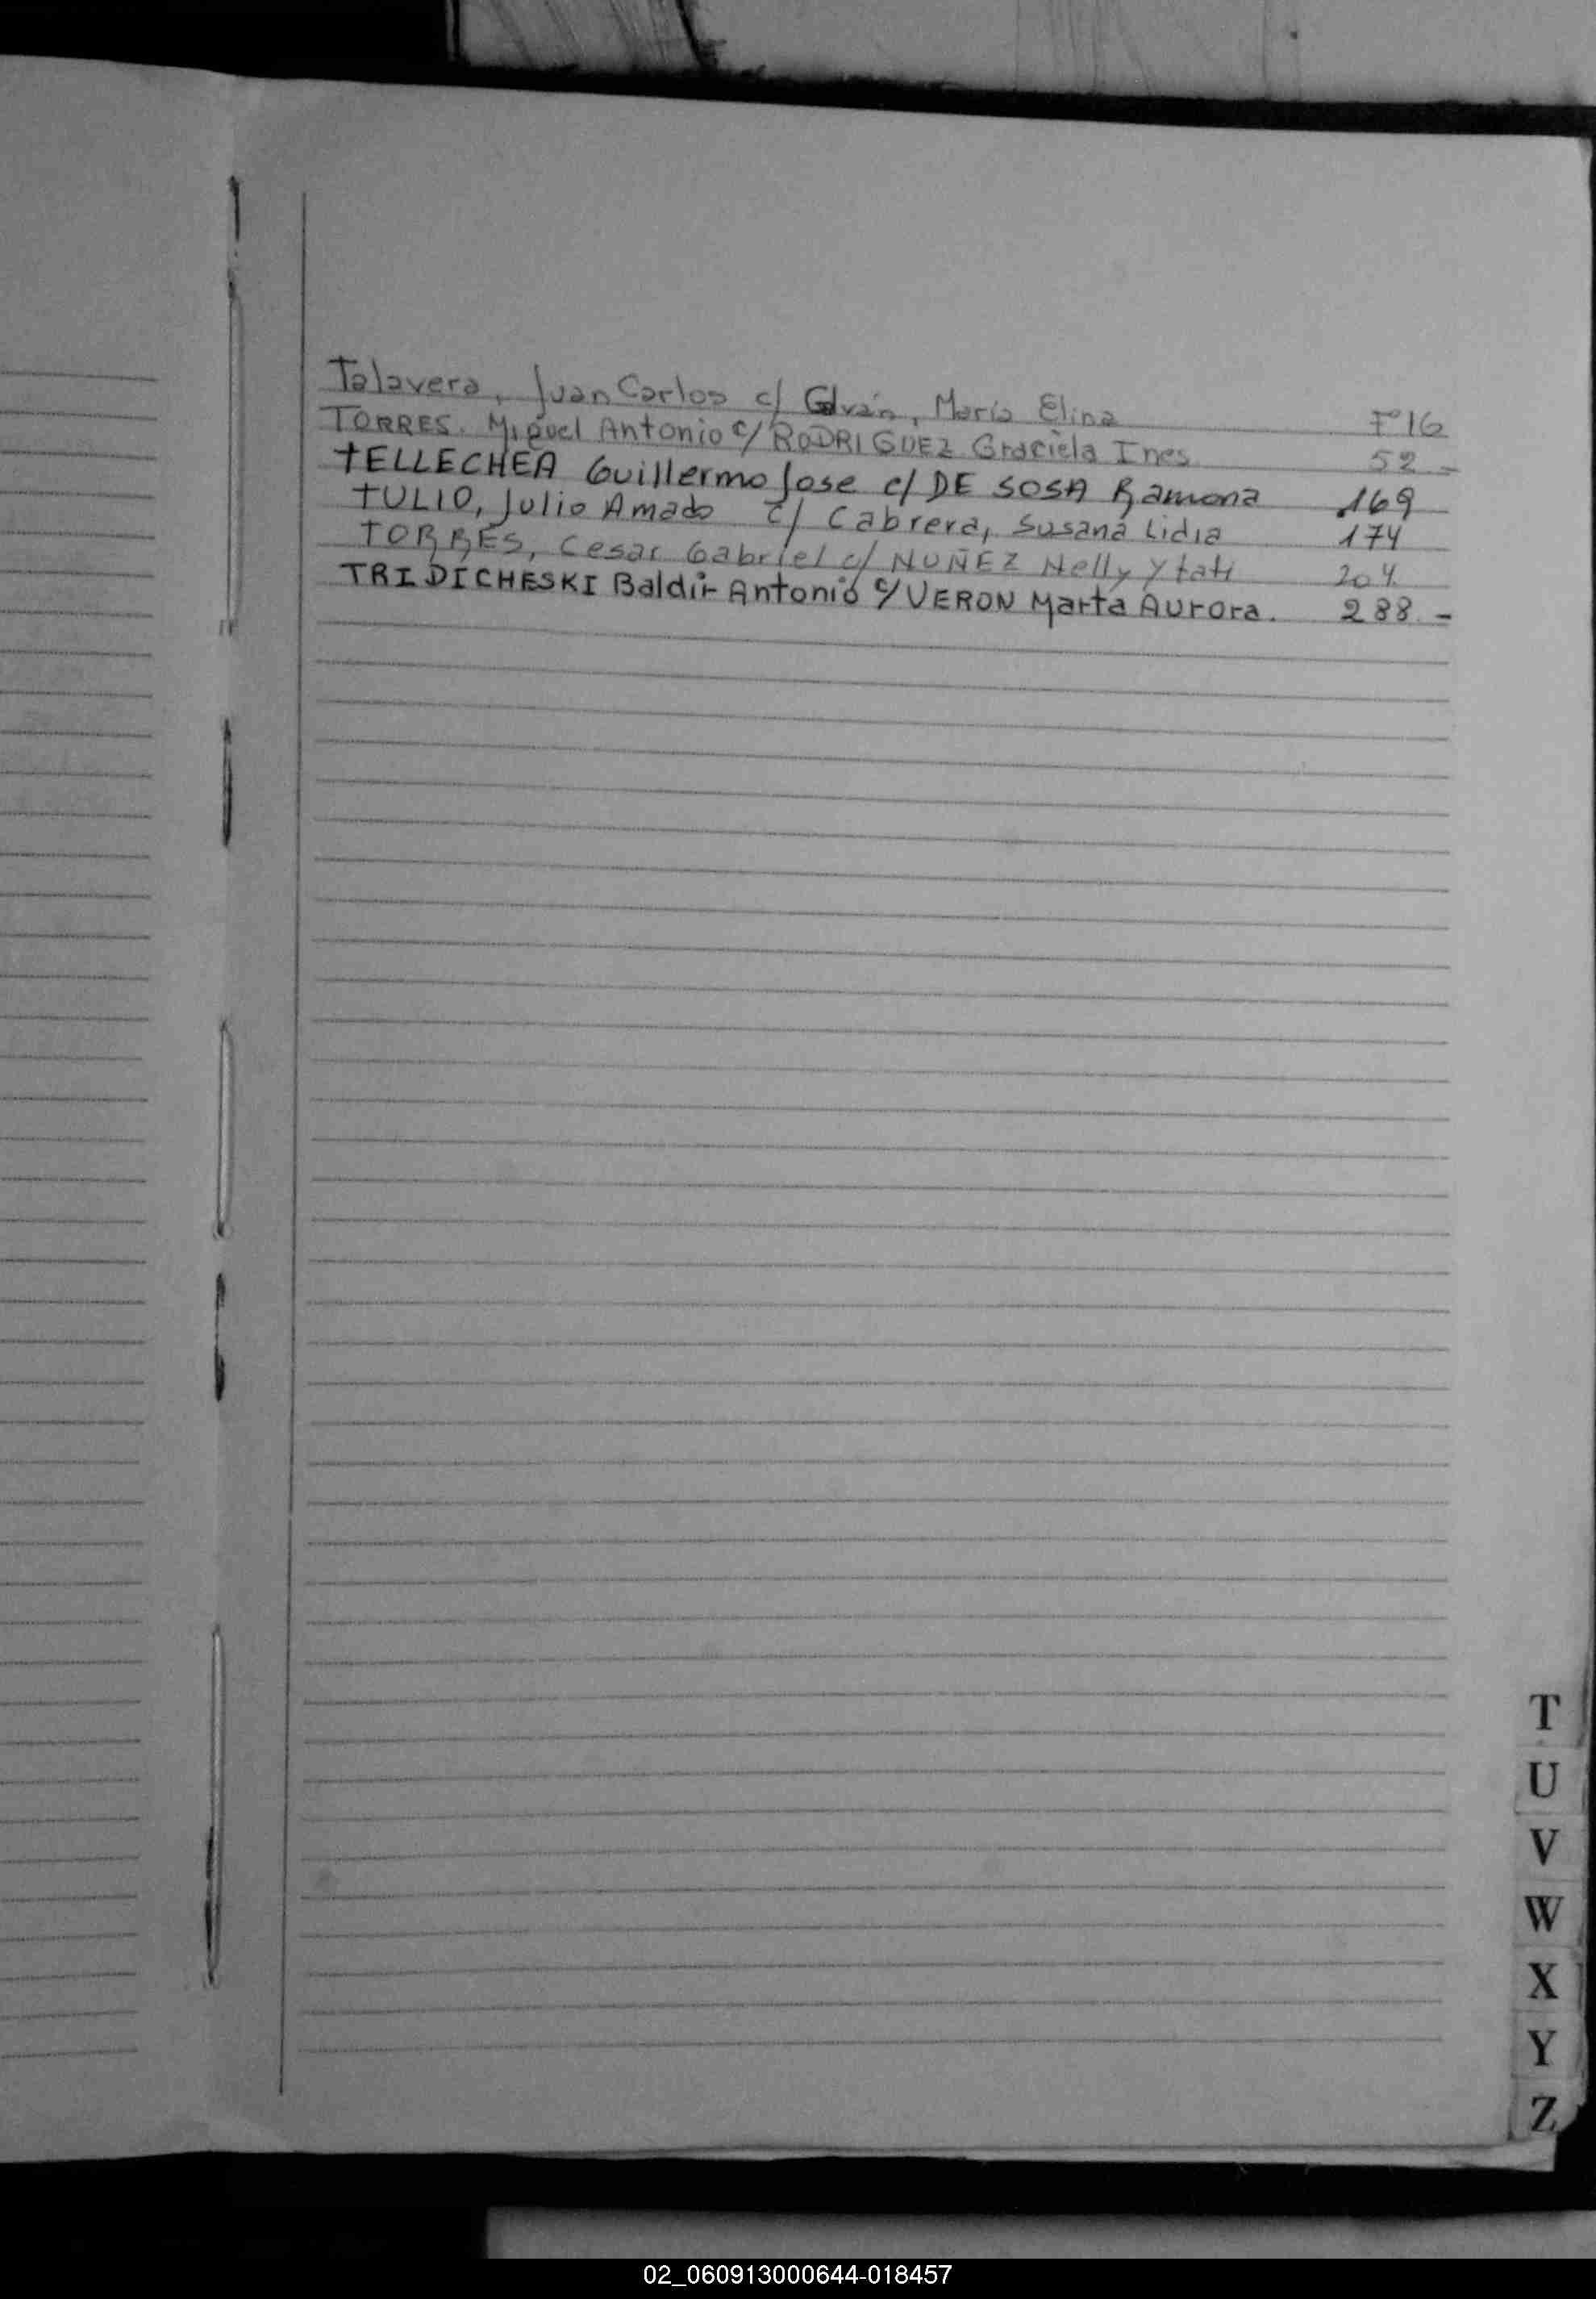 Talavera, Juan Carlos c/ Galván, María Elina F° 16
TORRES. Miguel Antonio c/ RODRIGUEZ Graciela Ines 52 -
TELLECHEA Guillermo Jose c/ DE SOSA Ramona 169
TULIO, Julio Amado c/ Cabrera, Susana Lidia 174
TORRES, Cesar Gabriel c/ NUÑEZ Nelly Ytatí 204
TRIDICHESKI Baldir Antonio c/ VERON Marta Aurora. 288. -
T
U
V
W
X
Y
Z
02_060913000644-018457